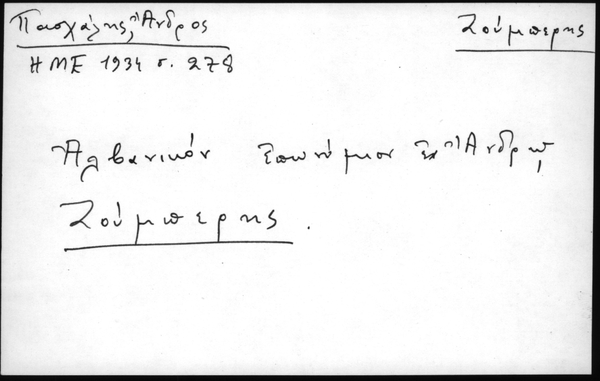 Πασχάλης, Ἄνδρος
Ζούμπερης
ΗΜΕ 1934 σ. 278
Ἀλβανικόν ἐπώνυμον ἐν Ἄνδρῳ,
Ζούμπερης.